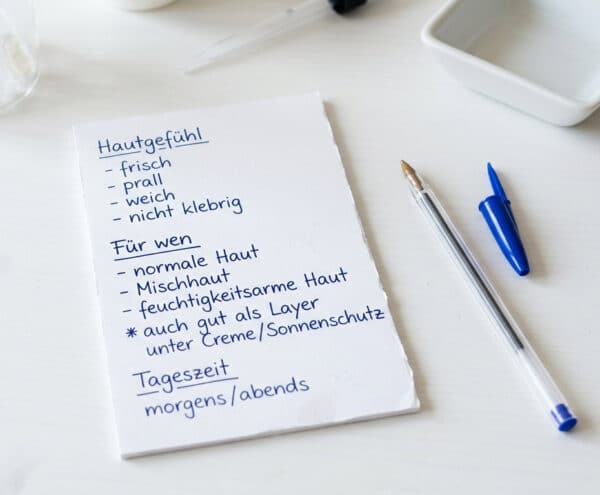 Hautgefühl
- frisch
- prall
- weich
- nicht klebrig
Für wen
- normale Haut
- Mischhaut
- feuchtigkeitsarme Haut
* auch gut als Layer
unter Creme/Sonnenschutz
Tageszeit
morgens/abends